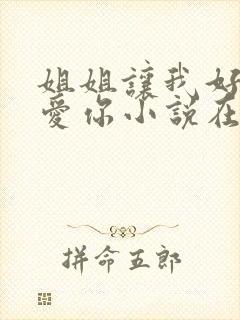 姐姐讓我好
愛你小說在
拼命五郎